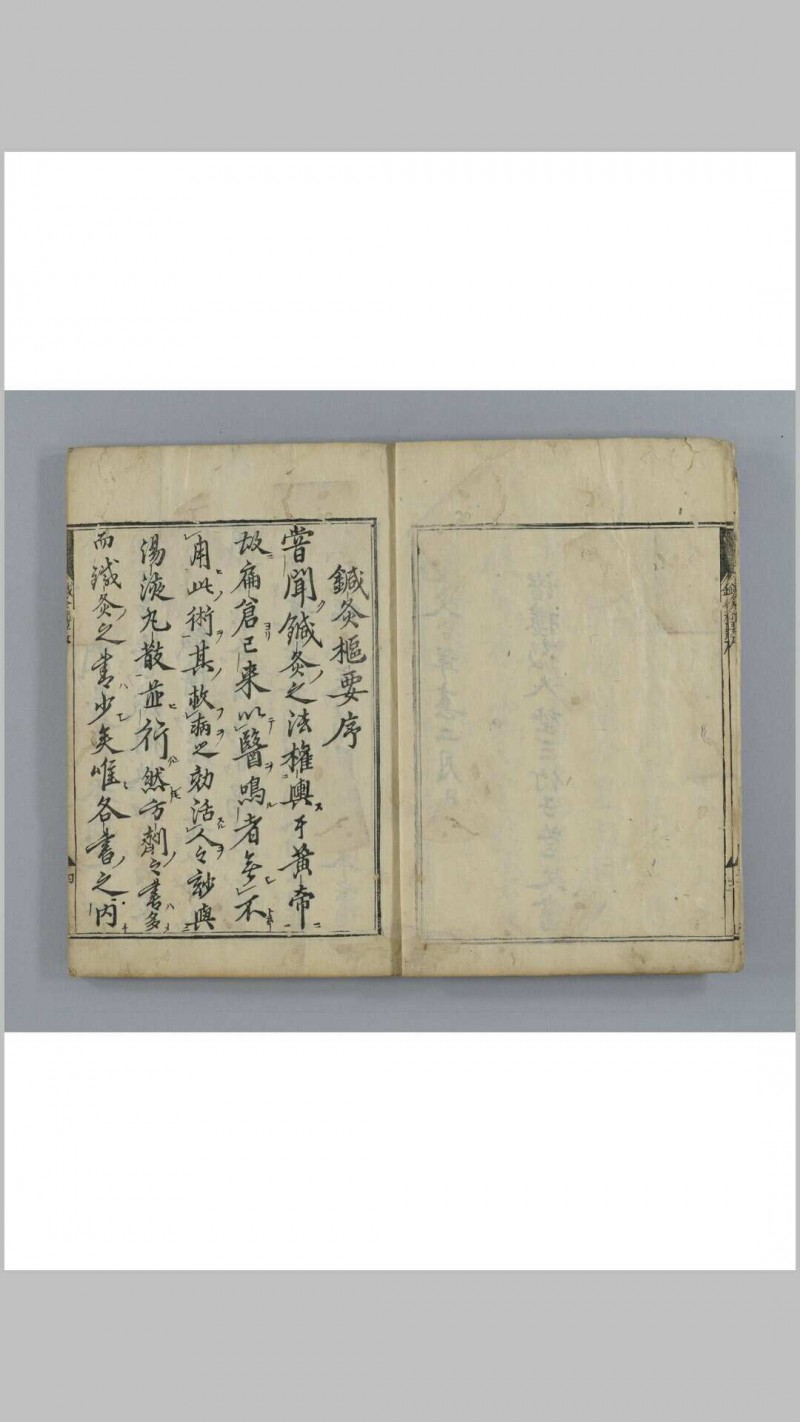 鍼灸樞要序
嘗聞鍼灸之法權輿于黃帝
故扁倉已来以醫鳴者無不
用此術其救病之効活人之妙與
湯液丸散並行然方劑之書多
而鍼灸之書少矣唯各書之内